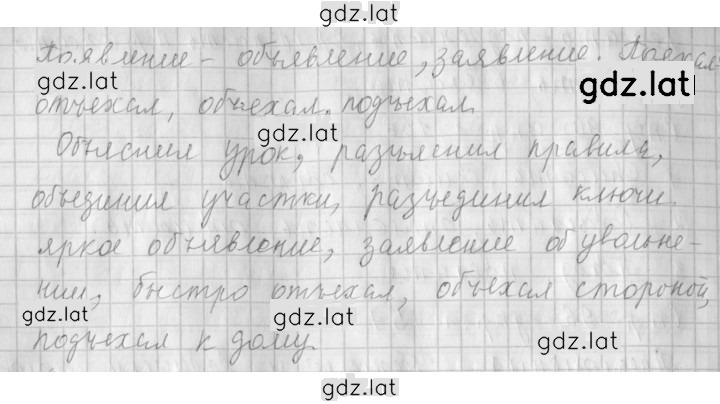 gdz.lat
Появление - объявление, заявление. Поехал-
gdz.lat
gdz.lat
отъехал, объехал. подъехал.
gdz.lat
Объяснил урок, разъяснил правила,
объединил участки, разъединил ключи.
яркое объявление, заявление об увольне-
нии, быстро отъехал, объехал стороной,
gdz.lat
gdz.lat
подъехал к дому.
gdz.lat
gdz.lat